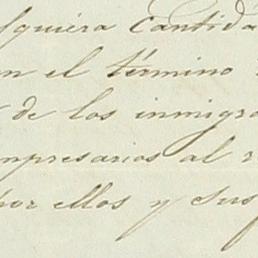 squiera cantida
en el término
de los inmigra
mpresarios al r
por ellos y sus